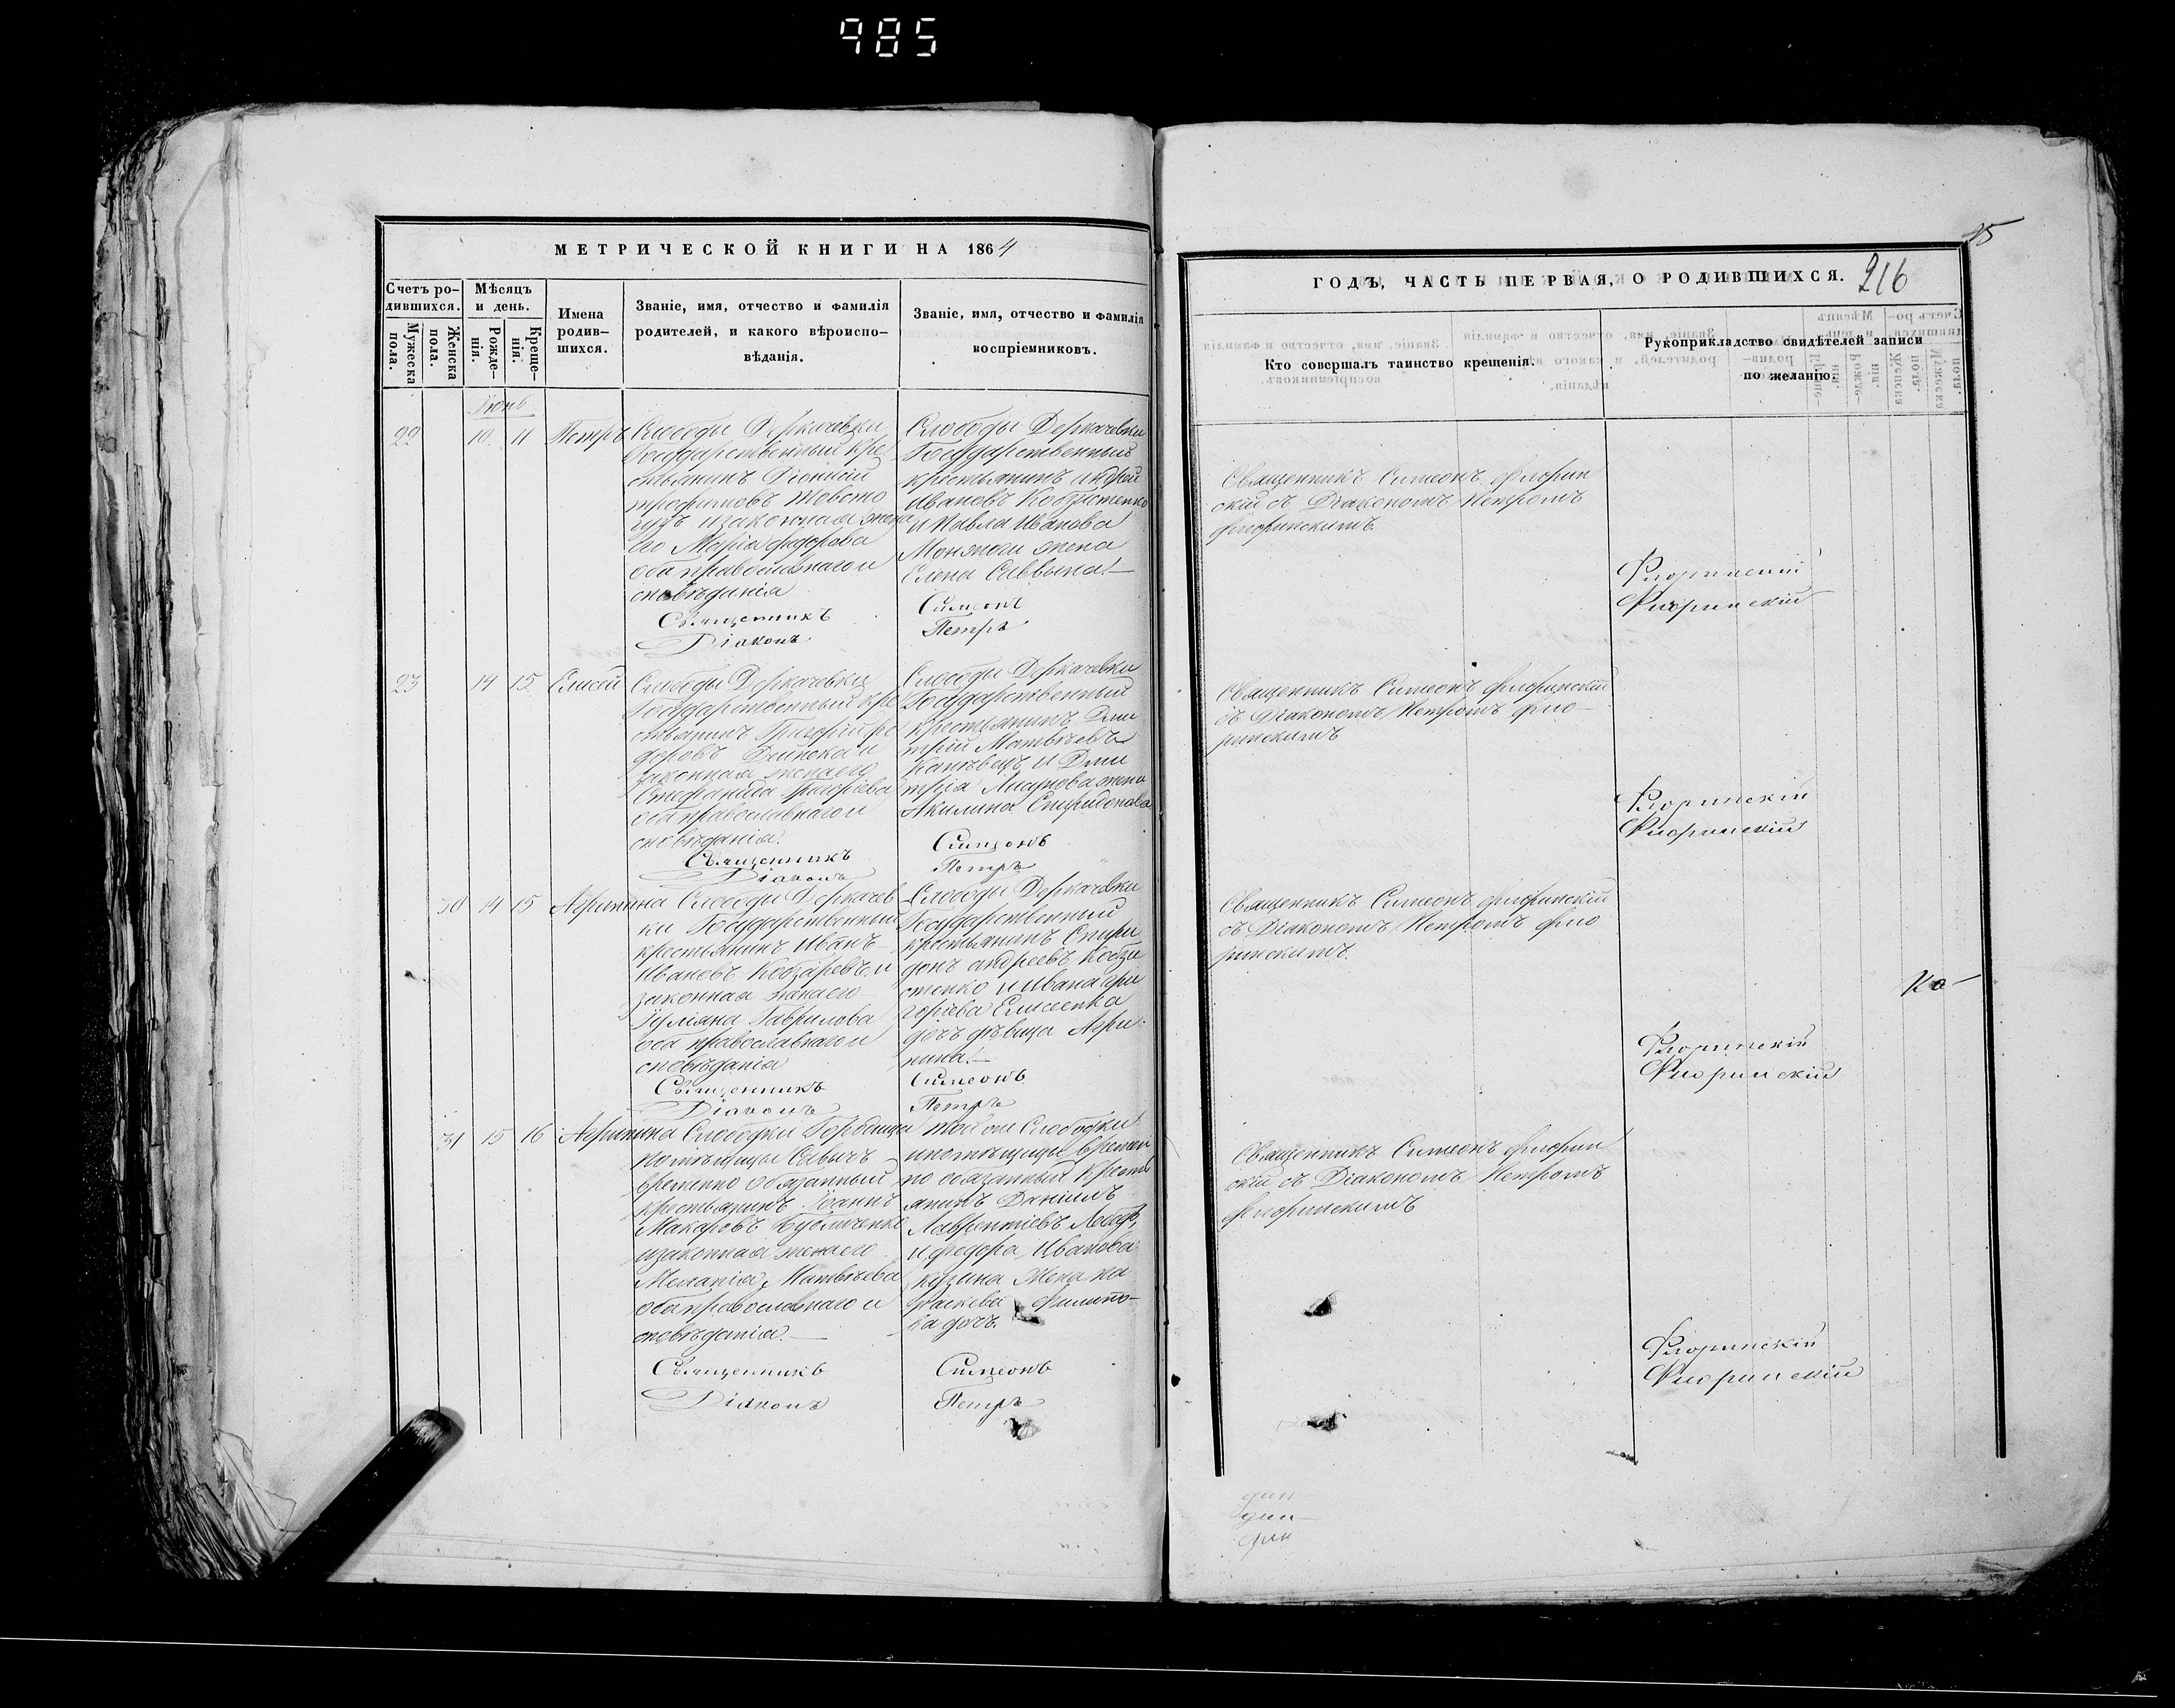 985
МЕТРИЧЕСКОЙ КНИГИ НА 1864
Счетъ ро-
дившихся.
Мужеска
пола.
Женска
пола.
Мѣсяцъ
и день.
Рожде-
нія.
Креще-
нія.
Имена
родив-
шихся.
Званіе, имя, отчество и фамилія
родителей, и какого вѣроиспо-
вѣданія.
Званіе, имя, отчество и фамилія
воспріемниковъ.
Іюнь
22 10. 11 Петръ
Слободы Деркачевки
Государственный кре
стьянинъ Діонисій
Трофимовъ Товсто
гузъ и законная жена
его Марія Федорова
оба православнаго и
сповѣданія
Священникъ
Діаконъ
Слободы Деркачевки
Государственный
крестьянинъ Андрей
Ивановъ Кобзистенко
и Павла Иванова
жена
Елена Саввына.
Симеонъ
Петръ
23 14 15. Елисей
Слободы Деркачевки
Государственный кре
стьянинъ Григорій Фе
доровъ и
законная жена его
Стефанида Григорьева
оба православнаго и
сповѣданія.
Священникъ
Діаконъ
Слободы Деркачевки
Государственный
крестьянинъ Дми
трій Матвѣевъ
и Дми
трія жена
Акилина Спиридонова
Симеонъ
Петръ
30 14 15 Агрипина
Слободы Деркачев
ки Государственный
крестьянинъ Иванъ
Ивановъ Кобзаревъ и
законная жена его
Іуліяна Гаврилова
оба православнаго и
сповѣданія
Священникъ
Діаконъ
Слободы Деркачевки
Государственный
крестьянинъ Спири
донъ Андреевъ Кобзи
стенко и Ивана Гри
горіева Елисеенка
дочь дѣвица Агри
пина.
Симеонъ
Петръ
31 15 16 Агрипина
Слободки
помѣщицы Савичъ
временно обязанный
крестьянинъ Іоаннъ
Макаровъ
и законная жена его
Меланія Матвѣева
оба православнаго и
сповѣданія.
Священникъ
Діаконъ
той же Слободки
и помѣщицы времен
но обязанный кресть
янинъ Даніилъ
Лаврентіевъ
и Федора Иванова
жена Па
раскева Филипо-
ва дочь.
Симеонъ
Петръ
15
ГОДЪ, ЧАСТЬ ПЕРВАЯ, О РОДИВШИХСЯ. 216
Кто совершалъ таинство крещенія.
Рукоприкладство свидѣтелей записи
по желанію.
Священникъ Симеонъ Флорин
скій съ Діакономъ Петромъ
Флоринскимъ.
Флоринскій
Флоринскій
Священникъ Симеонъ Флоринскій
съ Діакономъ Петромъ Фло-
ринскимъ
Флоринскій
Флоринскій
Священникъ Симеонъ Флоринскій
съ Діакономъ Петромъ Фло
ринскимъ.
Флоринскій
Флоринскій
Священникъ Симеонъ Флорин
скій съ Діакономъ Петромъ
Флоринскимъ
Флоринскій
Флоринскій